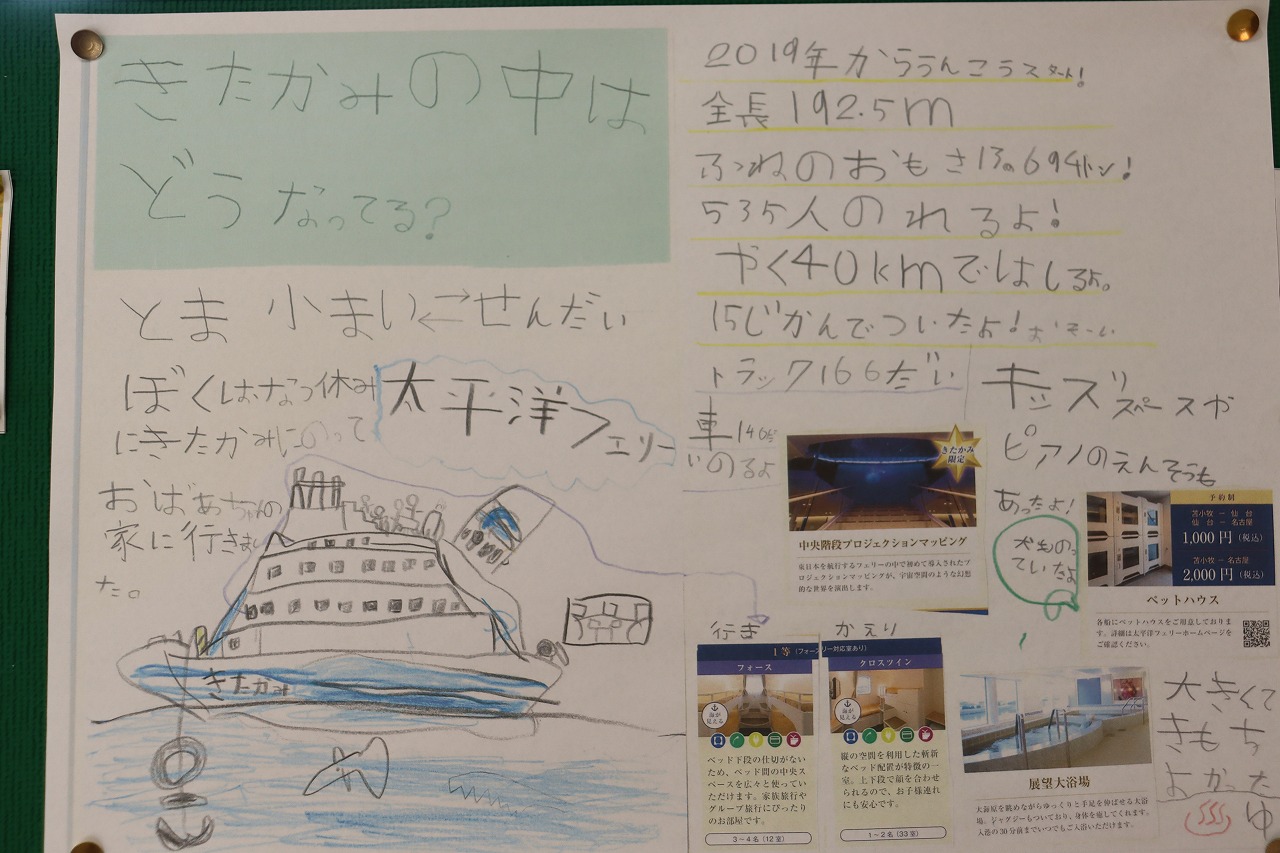 きたかみの中は
どうなってる?
とま小まい⇄せんだい
ぼくはなつ休み
にきたかみにのって
おばあちゃんの
家に行きまし
た。
太平洋フェリー
きたかみ
2019年からうんこうスタート!
全長192.5m
ふねのおもさ13の694トン!
535人のれるよ!
やく40kmではしるよ。
15じかんでついたよ!おそーい
トラック166だい
車146だ
いのるよ
キッズスペースや
ピアノのえんそうも
あったよ!
犬ものっ
ていたよ
きたかみ
限定
中央階段プロジェクションマッピング
東日本を航行するフェリーの中で初めて導入されたプ
ロジェクションマッピングが、宇宙空間のような幻想
的な世界を演出します。
予約制
苫小牧ー仙台
仙台ー名古屋
1,000円(税込)
苫小牧ー名古屋
2,000円(税込)
ペットハウス
各船にペットハウスをご用意しておりま
す。詳細は太平洋フェリーホームページを
ご確認ください。
行き
1等
フォース
海が
見える
ベッド下段の仕切がない
ため、ベッド間の中央ス
ペースを広々と使ってい
ただけます。家族旅行や
グループ旅行にぴったり
のお部屋です。
3−4名(12室)
かえり
クロスツイン
海が
見える
縦の空間を利用した斬新
なベッド配置が特徴の一
室。上下段で顔を合わせ
られるので、お子様連れ
にも安心です。
1〜2名(33室)
展望大浴場
大海原を眺めながらゆっくりと手足を伸ばせる大浴
場。ジャグジーもついており、身体を癒してくれます。
入港の30分前までいつでもご入浴いただけます。
大きくて
きもち
よかった
ゆ